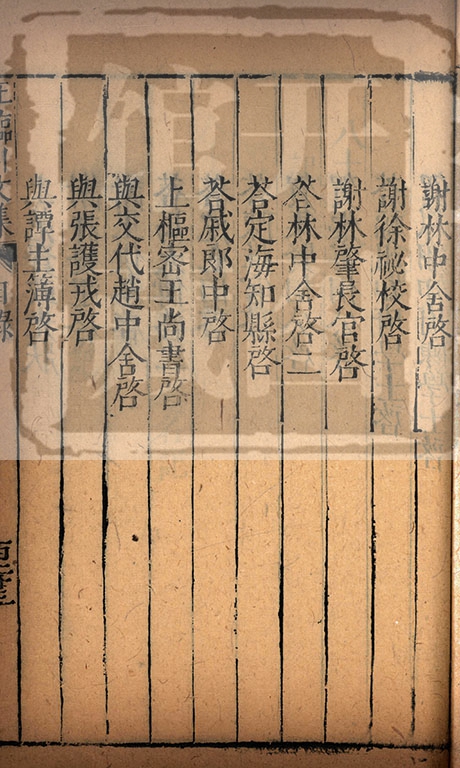 謝林中舍啓
謝徐祕校啓
謝林肇長官啓
荅林中舍啓二
荅定海知縣啓
荅戚郎中啓
上樞密王尚書啓
與交代趙中舍啓
與張護戎啓
與譚主簿啓
王臨川文集 目錄